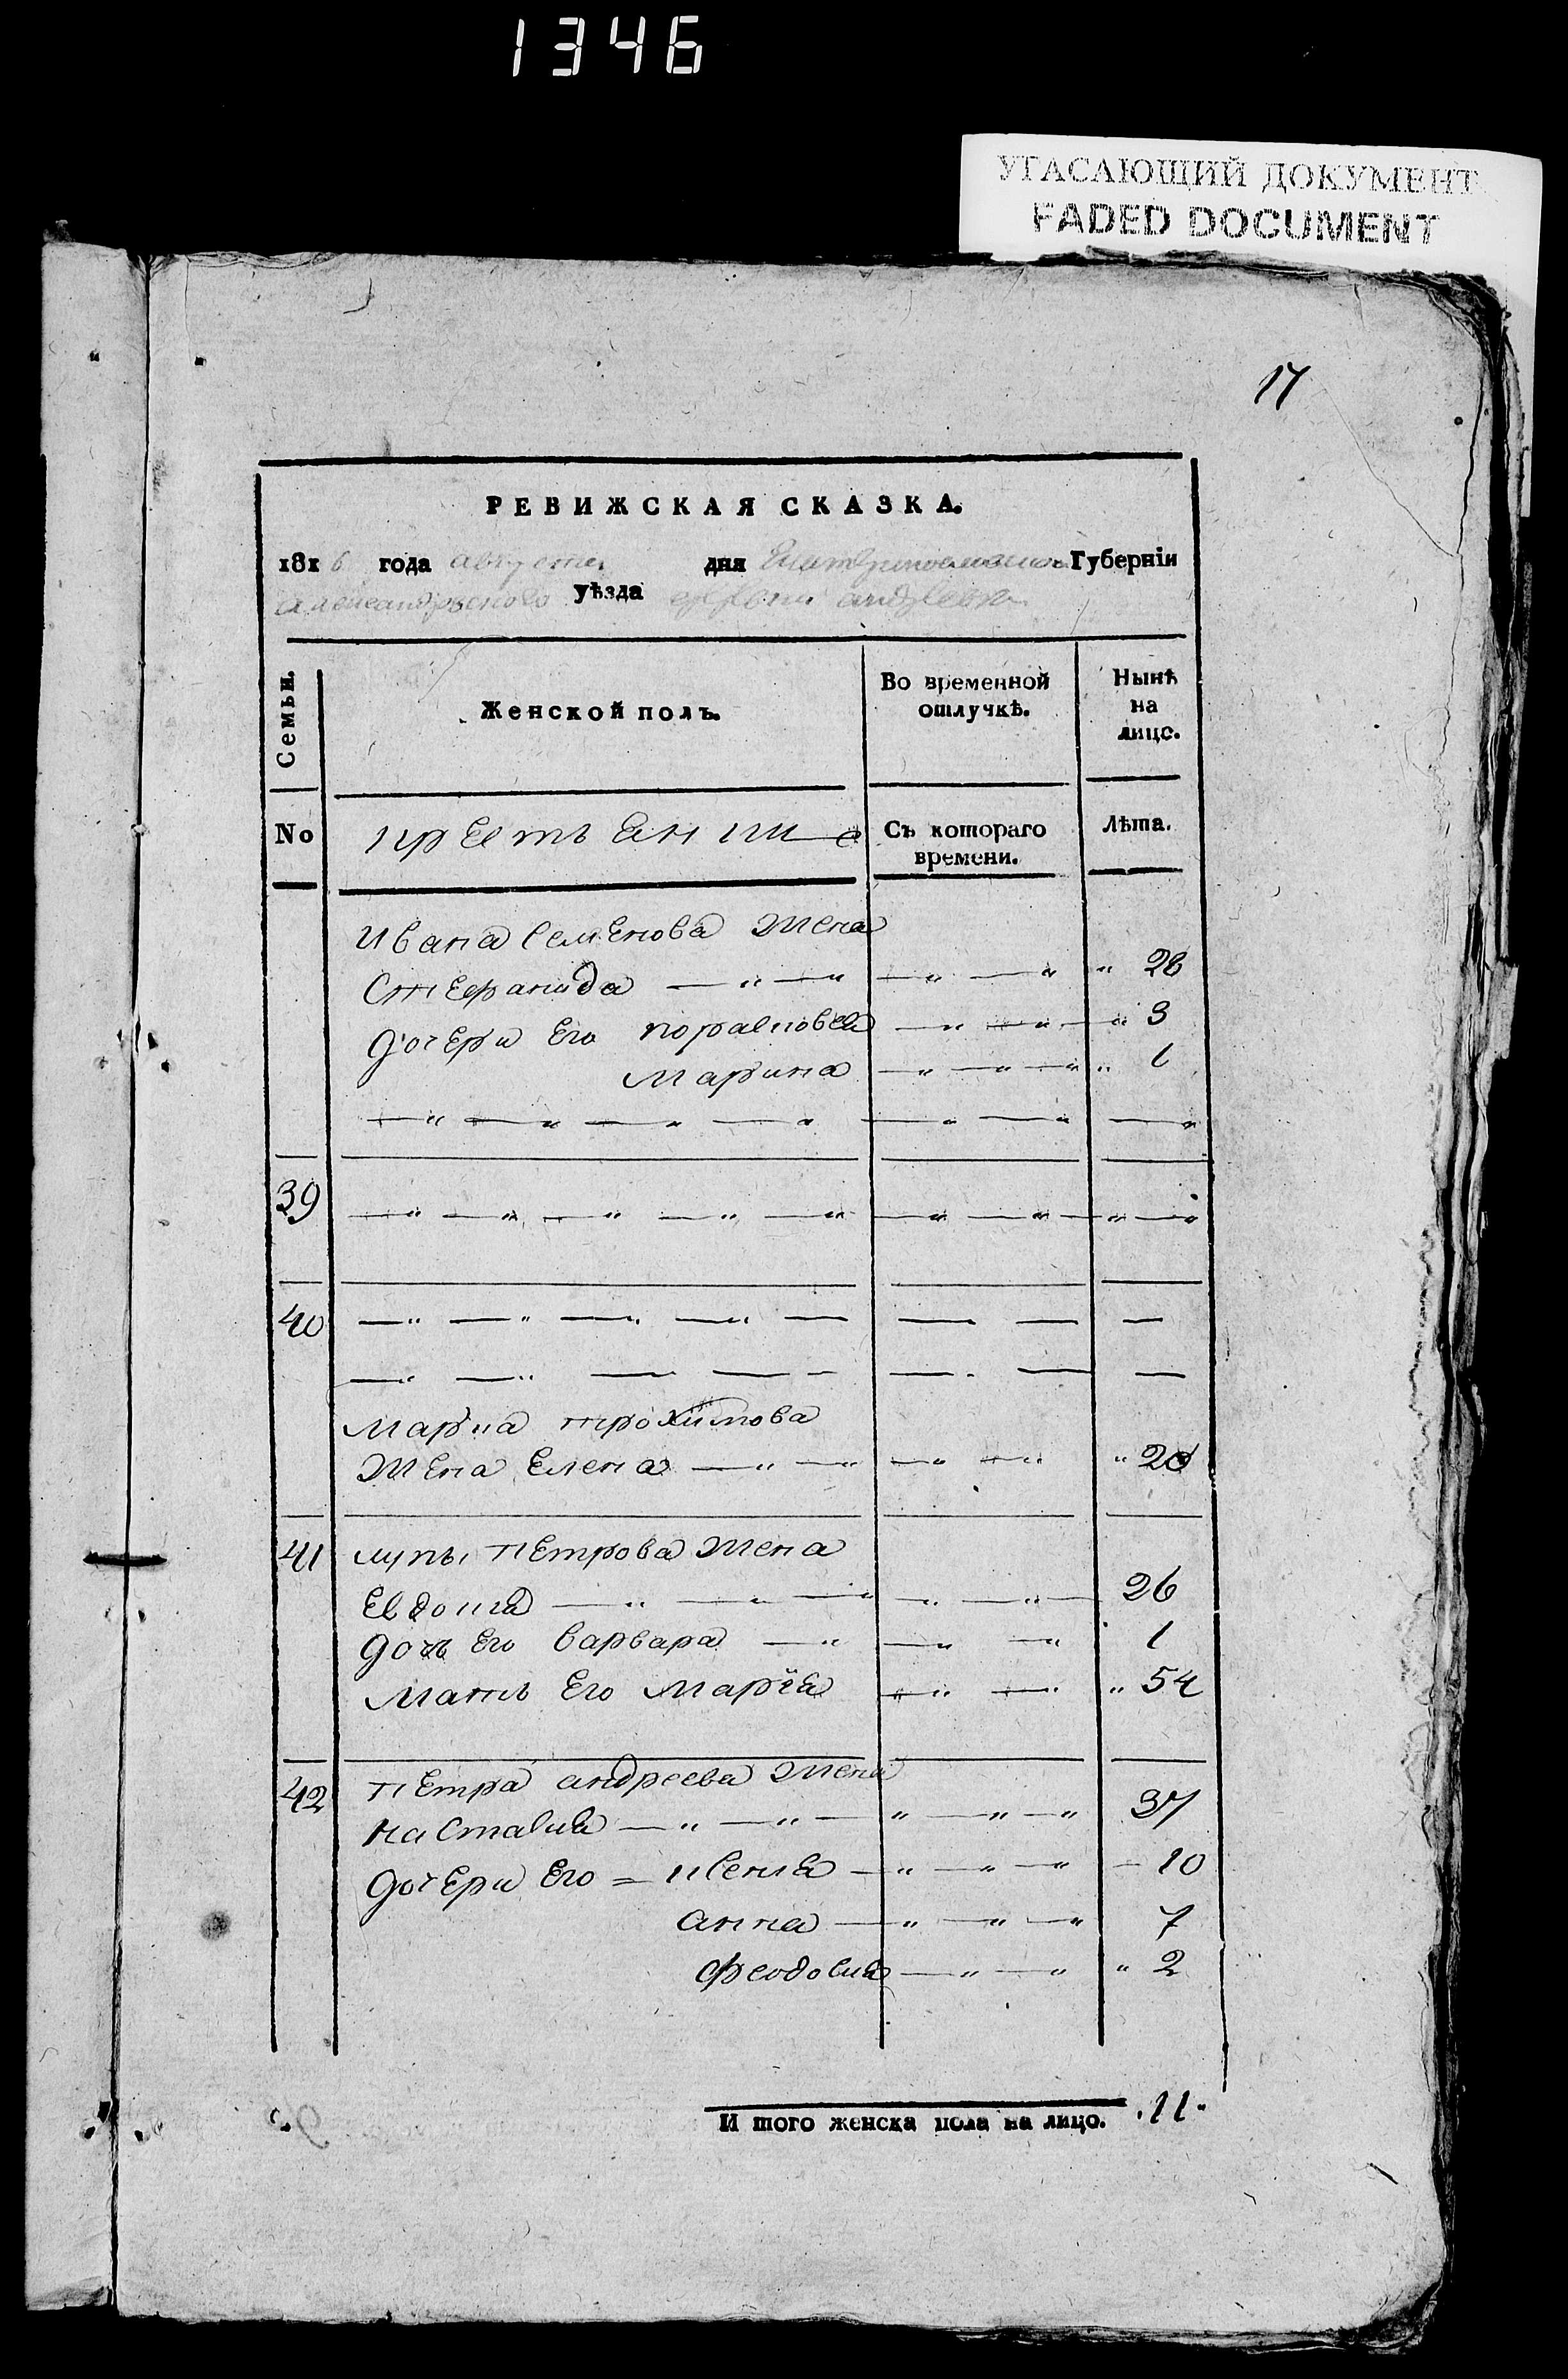 1346
УГАСАЮЩИЙ ДОКУМЕНТ
FADED DOCUMENT
17
РЕВИЖСКАЯ СКАЗКА.
1816 года августа дня Екатеринославской Губерніи
Александровского уѣзда андреевки
Семьи.
Женской полъ.
Во временной
отлучкѣ.
Нынѣ
на
лицо.
No
крестьянни
Съ котораго
времени.
Лѣта.
Ивана Семенова жена
Стефанида — „ — „ — „ — „ „ 28
дочери Его — „ — „ — „ 3
Марина — „ — „ — „ „ 1
— „ — „ — „ — „ — „ — „ — „
39 — „ — „ — „ — „ — „ — „ — „ — „ — „
40 — „ — „ — „ — „ — — — —
— „ — „ — — — — . — —
Марка трохимова
жена Елена — „ — „ — „ — „ „ 20
41 лупы петрова жена
Евдокия — „ — „ — „ — „ — „ — 26
дочь Его варвара — „ — „ — „ 1
Мать Его Марїя — „ — „ „ 54
42 петра андреева жена
настасия — „ — „ — „ — „ — „ 37
дочери Его = ксения — „ — „ — „ — 10
анна — „ — „ — „ 7
феодосия — „ — „ „ 2
И того женска пола на лицо. . 11 .